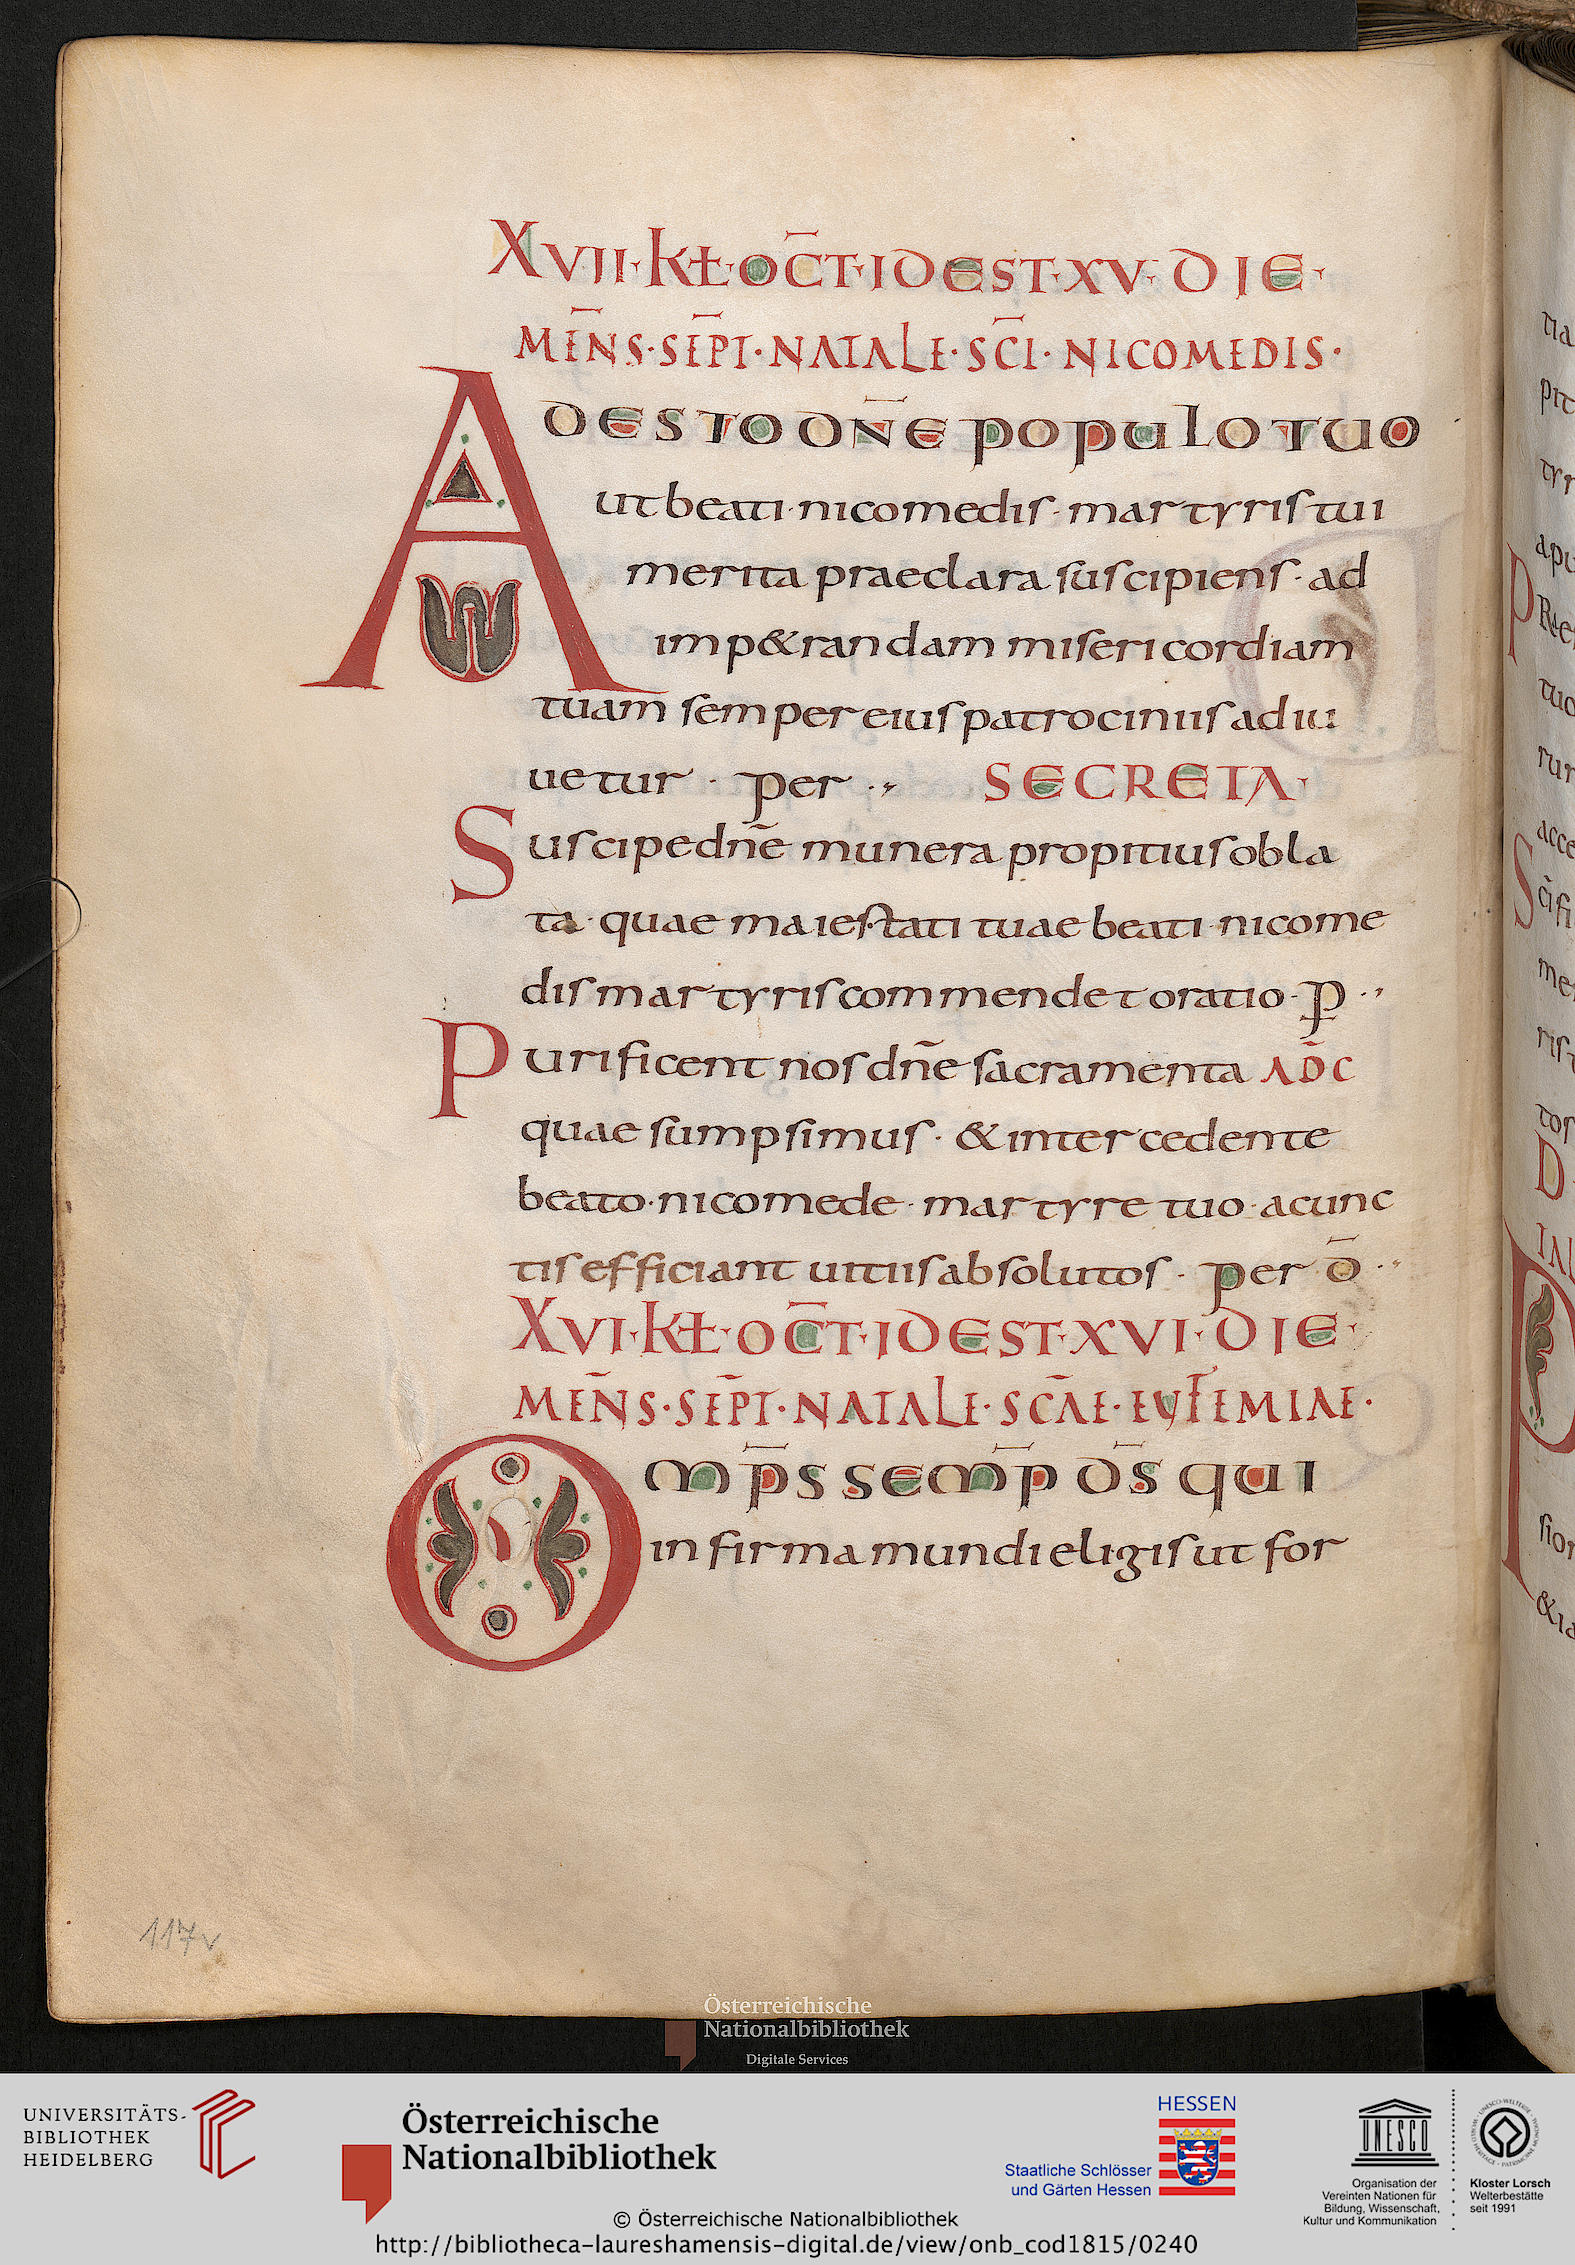 XVII·KƗ·OC̅T·IDEST·XV·DIE·
ME̅NS·SE̅PT·NATALE·SC̅I·NICOMEDIS·
ADESTO DN̅E POPULO TUO
ut beati·nicomedis·martyris tui
merita praeclara suscipiens·ad
imp&randam misericordiam
tuam semper eius patrociniis adiu
uetur· per·, SECRETA·
Suscipe dn̅e munera propitius obla
ta·quae maiestati tuae beati·nicome
dis martyris commendet oratio·p̲·,
Purificent nos dn̅e sacramenta AD̅C
quae sumpsimus·&intercedente
beato·nicomede·martyre tuo·acunc
tis efficiant uitiis absolutos· per d̅··
XVI·KƗ·OC̅T·IDEST·XVI·DIE·
MEN̅S·SE̅PT·NATALE·SC̅AE·EUFEMIAE·
OMP̅S SEMP̅ DS̅ QUI
infirma mundi eligis ut for
117v
tia
pit
tyr
apu
PRe
tuo
rur
acce
Sc̅i fi
me
ris t
tos
D
sion
&ia
Österreichische
Nationalbibliothek
Digitale Services
UNIVERSITÄTS-
BIBLIOTHEK
HEIDELBERG
Österreichische
Nationalbibliothek
HESSEN
Staatliche Schlösser
und Gärten Hessen
UNESCO
Organisation der
Vereinten Nationen für
Bildung, Wissenschaft,
Kultur und Kommunikation
Kloster Lorsch
Welterbestätte
seit 1991
© Österreichische Nationalbibliothek
http://bibliotheca-laureshamensis-digital.de/view/onb_cod1815/0240